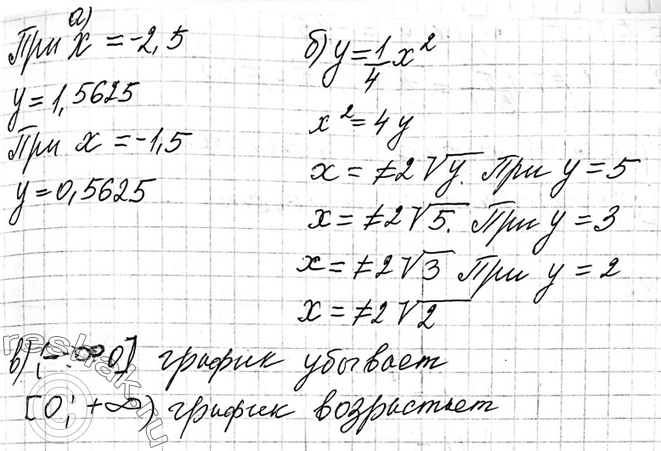 а)
При x = -2,5
y = 1,5625
При x = -1,5
y = 0,5625
б) y = 1/4 x²
x² = 4y
x = ±2√y. При y = 5
x = ±2√5. При y = 3
x = ±2√3 При y = 2
x = ±2√2
в) (-∞ 0] график убывает
[0; +∞) график возрастает
reshak.ru